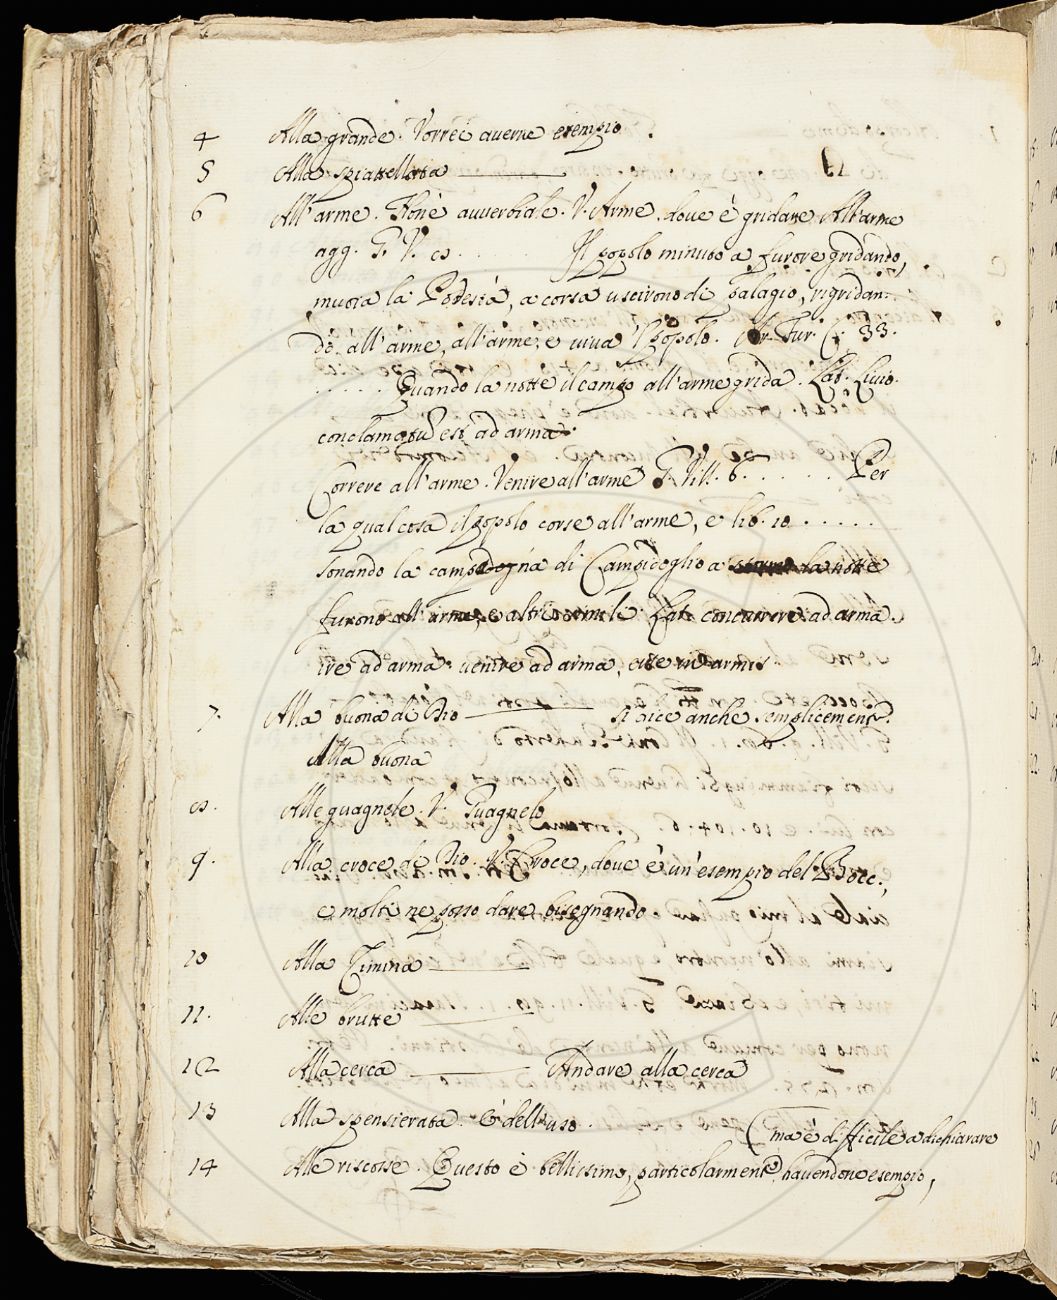 4 Alla grande. Vorrei averne esempio.
5 Alla spiattellata
6 All'arme. Non è avverbiale. V. Arme, dove è gridare All'arme
agg. G. V. 8 . . . . . Il popolo minuto a furore gridando,
muoia la Podestà, a corsa uscirono di palagio, rigridan-
do, all'arme, all'arme, e viva il popolo. Ar. Fur. C. 33.
. . . . . Quando la notte il campo all'arme grida. Lat. Livio.
conclamatum est ad arma.
Correre all'arme. Venire all'arme G. Vill. 6. . . . . . Per
la qual cosa il popolo corse all'arme, e lib. 10 . . . . .
sonando la campana di Campidoglio a la notte
furono all'arme, e altri simili. Lat. concurrere ad arma.
ire ad arma. venire ad arma, esse in armis
7. Alla buona di Dio si dice anche semplicemente.
Alla buona
8. Alle guagnele. V. Guagnelo
9. Alla croce di Dio. V. Croce, dove è un'esempio del Bocc.,
e molti ne posso dare bisognando
10 Alla Cimina
11. Alle brutte
12 Alla cerca Andare alla cerca
13 Alla spensierata. È dell'uso.
(ma è difficile a dichiarare
14 Alle riscosse. Questo è bellissimo, particolarmente, havendone esempio,